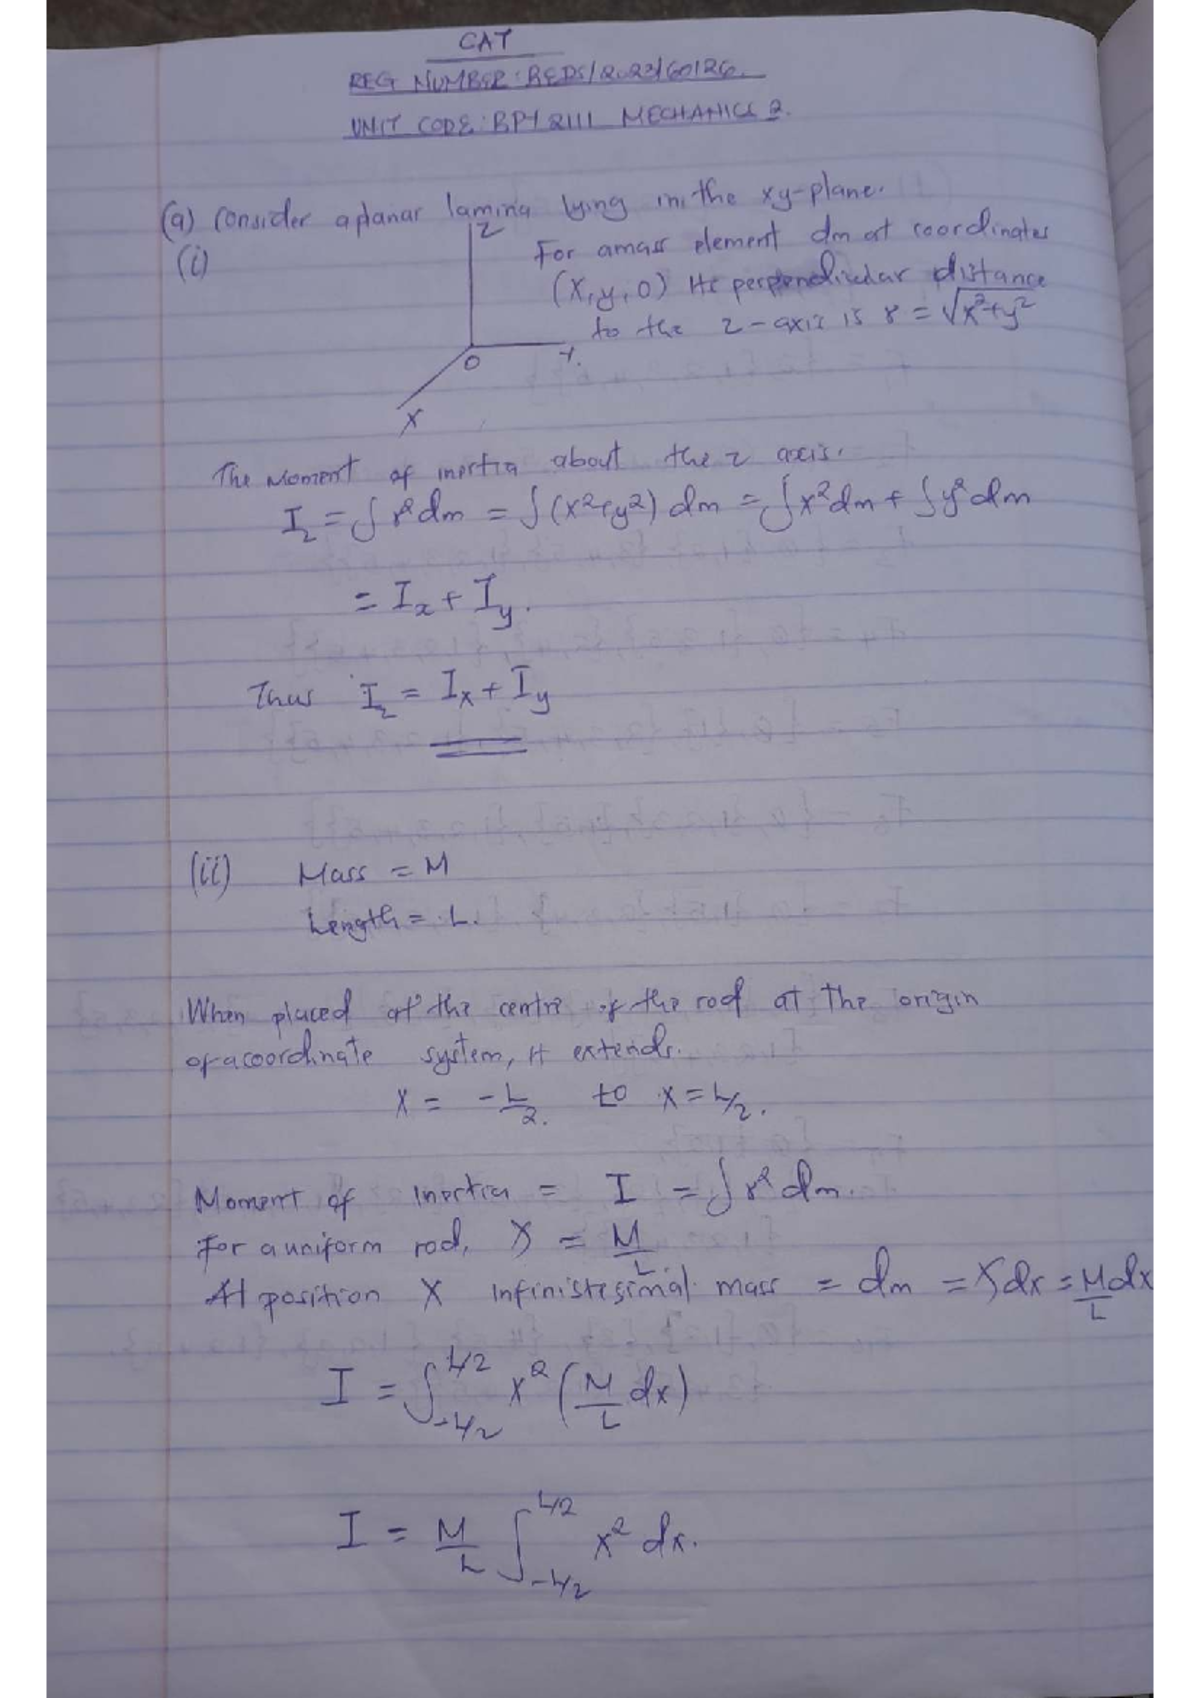 CAT
REG NUMBER: BEDS/2023/60126.
UNIT CODE: BPY 2111 MECHANICS 2.
(a) Consider a planar lamina lying in the xy-plane.
(i)
Z
O
Y.
X
For a mass element dm at coordinates
(X, y, 0) its perpendicular distance
to the z-axis is r = √x²+y²
The Moment of inertia about the z axis.
I_z = ∫ r² dm = ∫ (x²+y²) dm = ∫ x² dm + ∫ y² dm
= I_x + I_y.
Thus I_z = I_x + I_y
(ii) Mass = M
Length = L.
When placed at the centre of the rod at the origin
of a coordinate system, it extends.
X = -L/2. to X = L/2.
Moment of Inertia = I = ∫ r² dm.
For a uniform rod, λ = M/L.
At position X infinistesimal mass = dm = λdx = M/L dx
I = ∫_{-L/2}^{L/2} x² (M/L dx)
I = M/L ∫_{-L/2}^{L/2} x² dx.